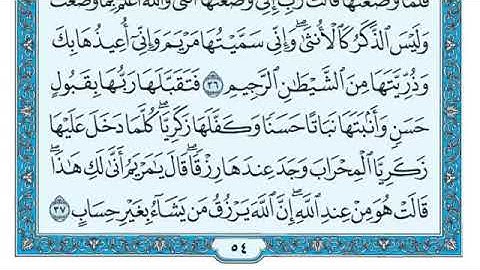 فَلَمَّا وَضَعَتْهَا قَالَتْ رَبِّ إِنِّي وَضَعْتُهَا أُنثَىٰ وَاللَّهُ أَعْلَمُ بِمَا وَضَعَتْ
وَلَيْسَ الذَّكَرُ كَالْأُنثَىٰ ۖ وَإِنِّي سَمَّيْتُهَا مَرْيَمَ وَإِنِّي أُعِيذُهَا بِكَ
وَذُرِّيَّتَهَا مِنَ الشَّيْطَٰنِ الرَّجِيمِ ٣٦ فَتَقَبَّلَهَا رَبُّهَا بِقَبُولٍ
حَسَنٍ وَأَنۢبَتَهَا نَبَاتًا حَسَنًا وَكَفَّلَهَا زَكَرِيَّا ۖ كُلَّمَا دَخَلَ عَلَيْهَا
زَكَرِيَّا الْمِحْرَابَ وَجَدَ عِندَهَا رِزْقًا ۖ قَالَ يَٰمَرْيَمُ أَنَّىٰ لَكِ هَٰذَا ۖ
قَالَتْ هُوَ مِنْ عِندِ اللَّهِ ۖ إِنَّ اللَّهَ يَرْزُقُ مَن يَشَآءُ بِغَيْرِ حِسَابٍ ٣٧
٥٤